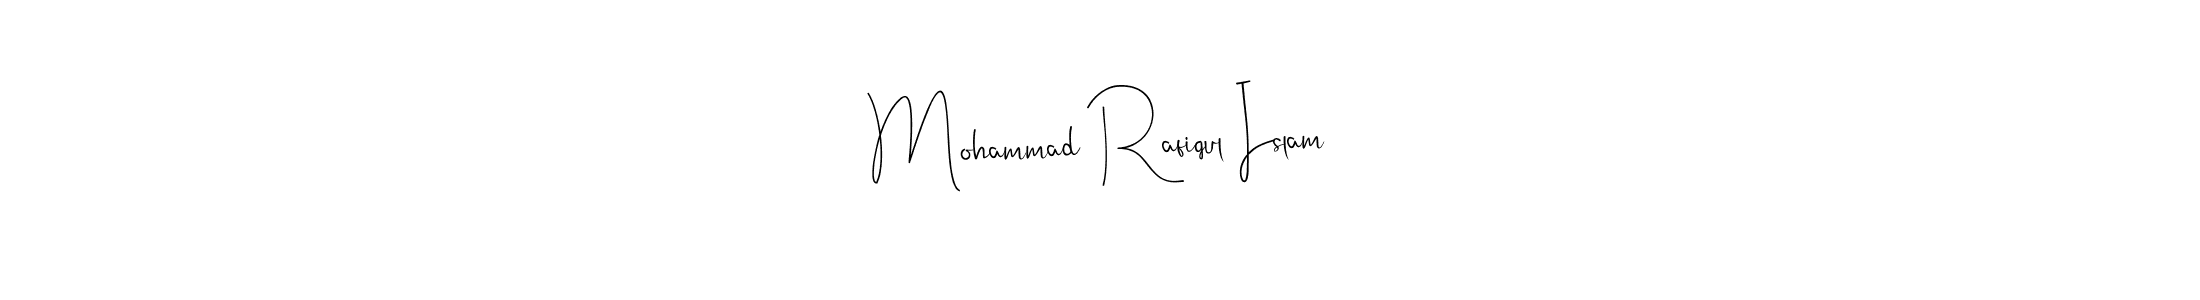 Mohammad Rafiqul Islam